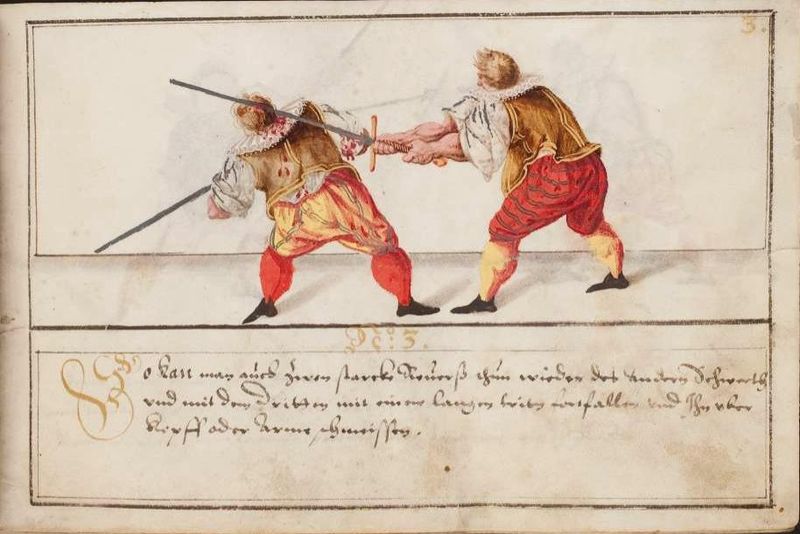 3.
No: 3.
So kan man auch zwen starcke Reverß thun wieder des andern Schwerth
vnd mit dem Dritten mit einem langen tritt fortfallen vnd Ihn vber
Kopff oder Arme schmeissen.